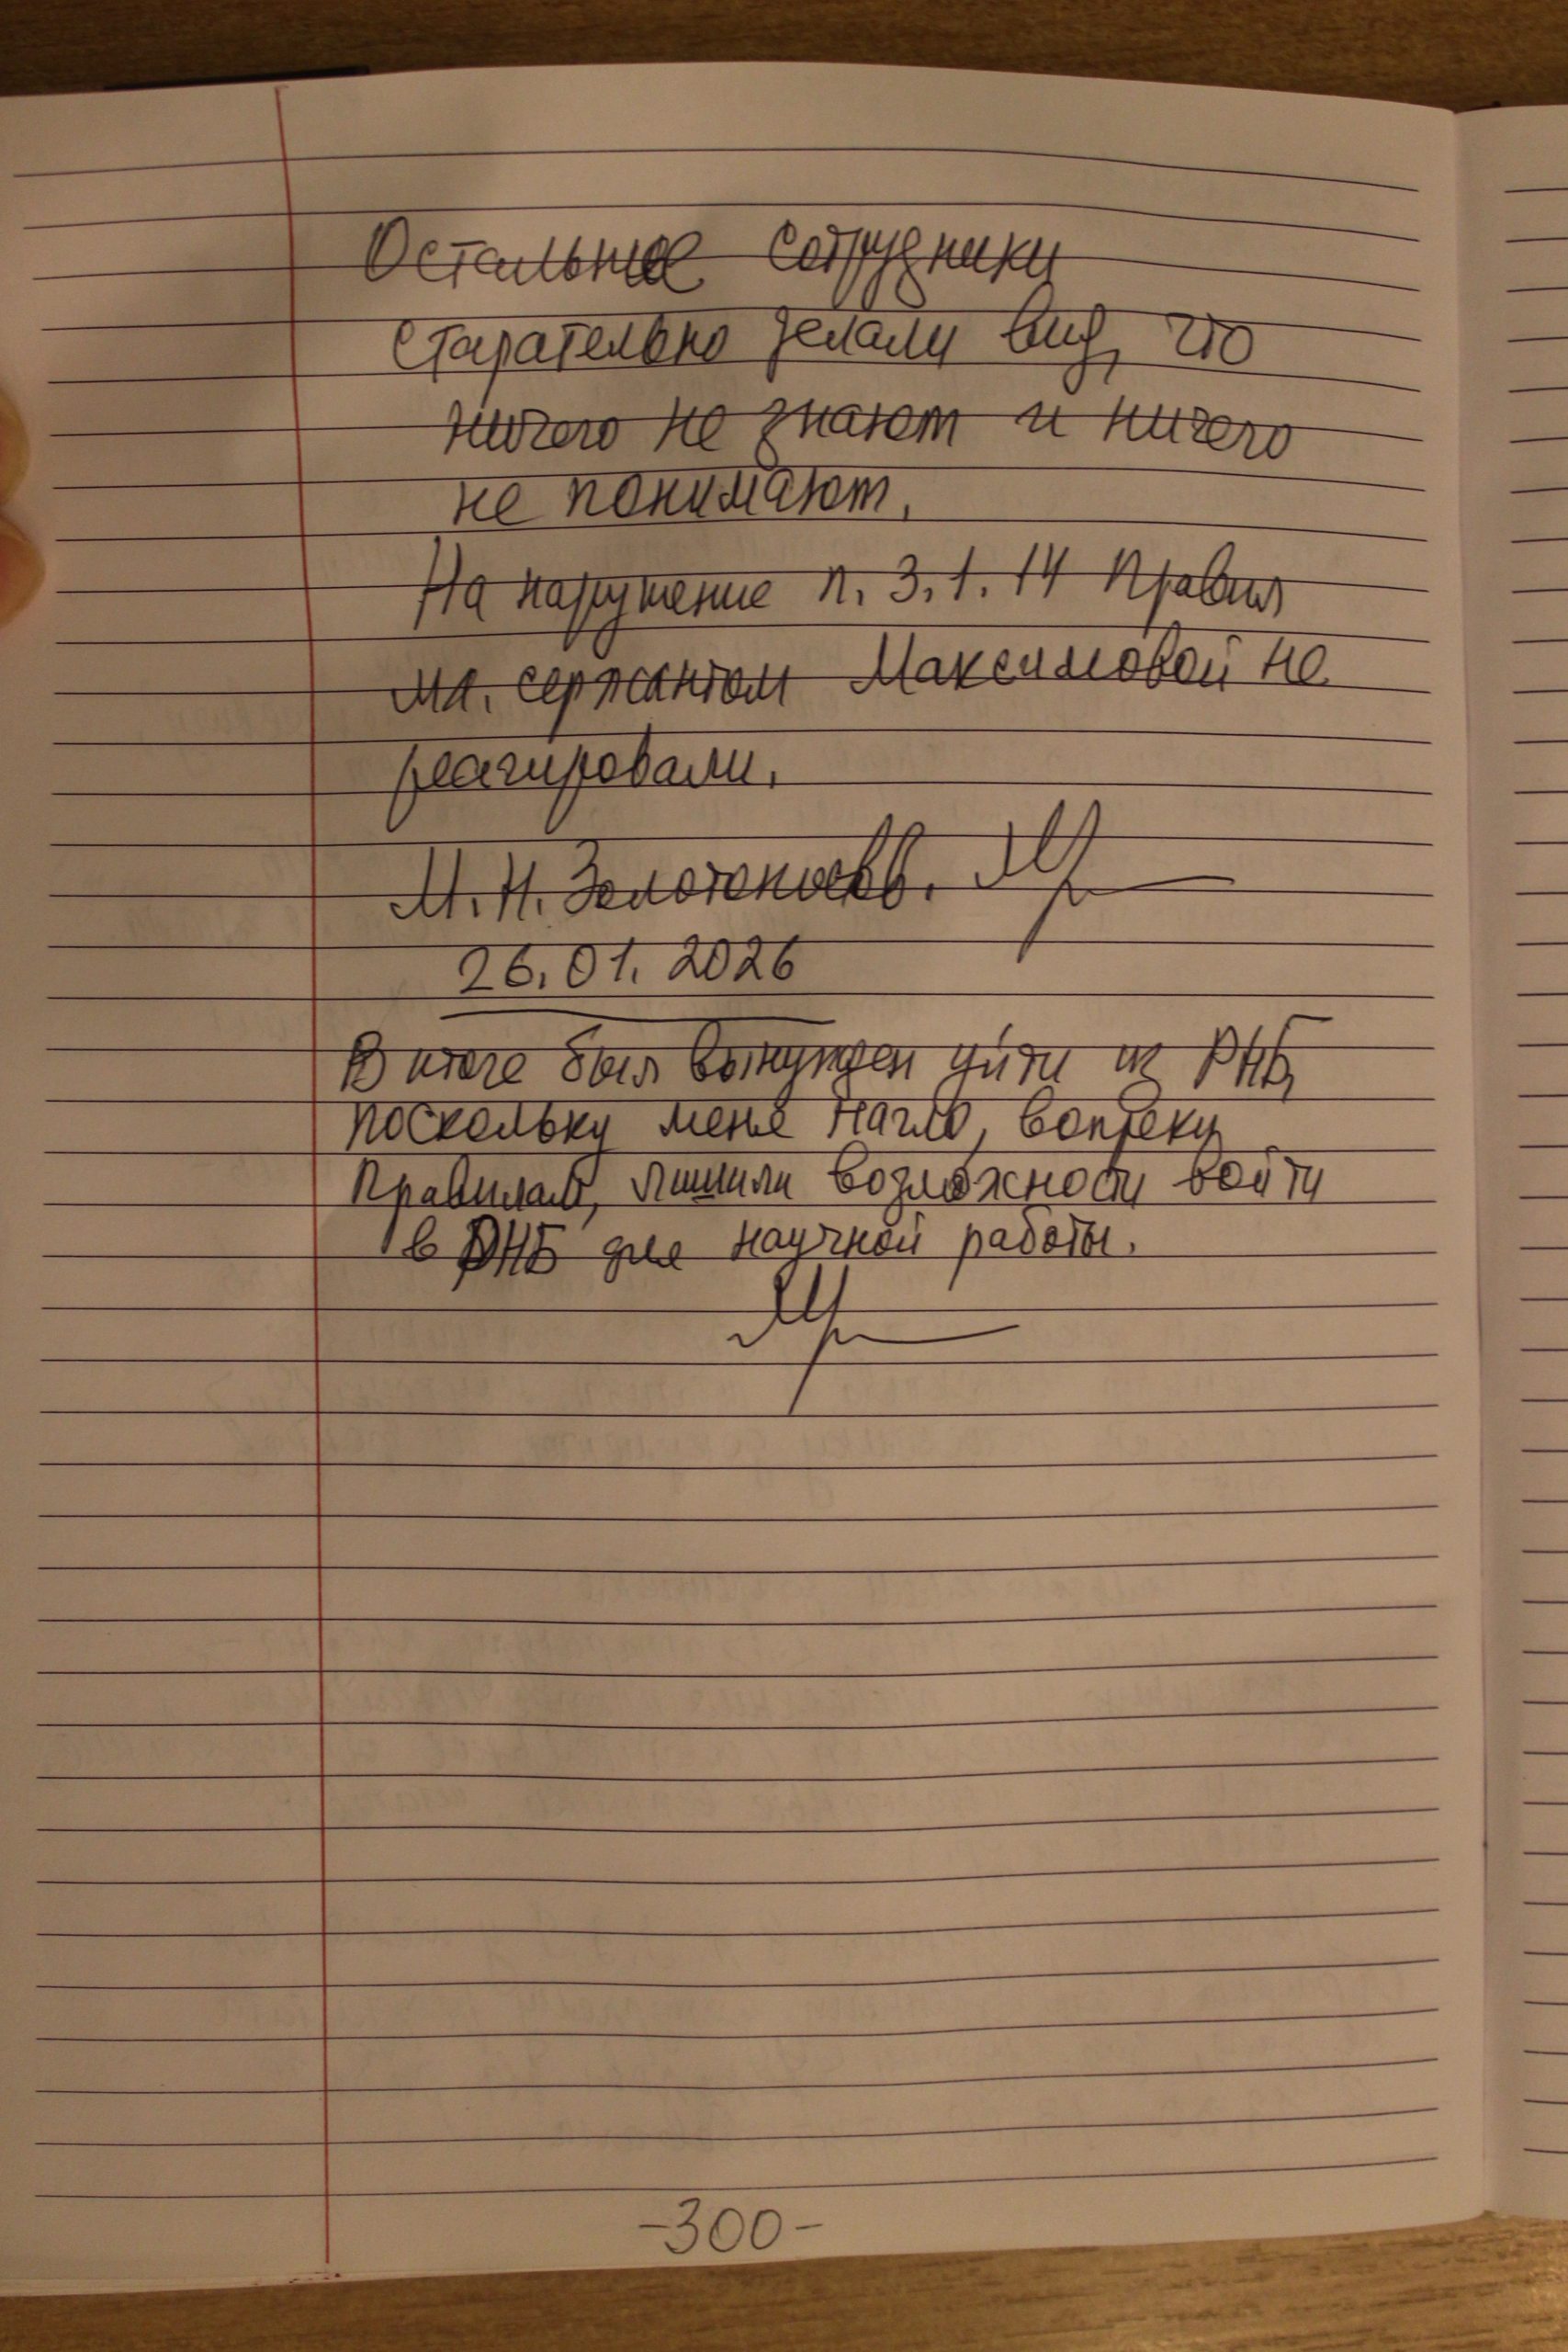 Остальные сотрудники
старательно делали вид, что
ничего не знают и ничего
не понимают.
На нарушение п. 3.1.14 Правил
мл. сержантом Максимовой не
реагировали.
М.Н.
26.01.2026
В итоге был вынужден уйти из РНБ,
поскольку меня нагло, вопреки
Правилам, лишили возможности войти
в РНБ для научной работы.
-300-